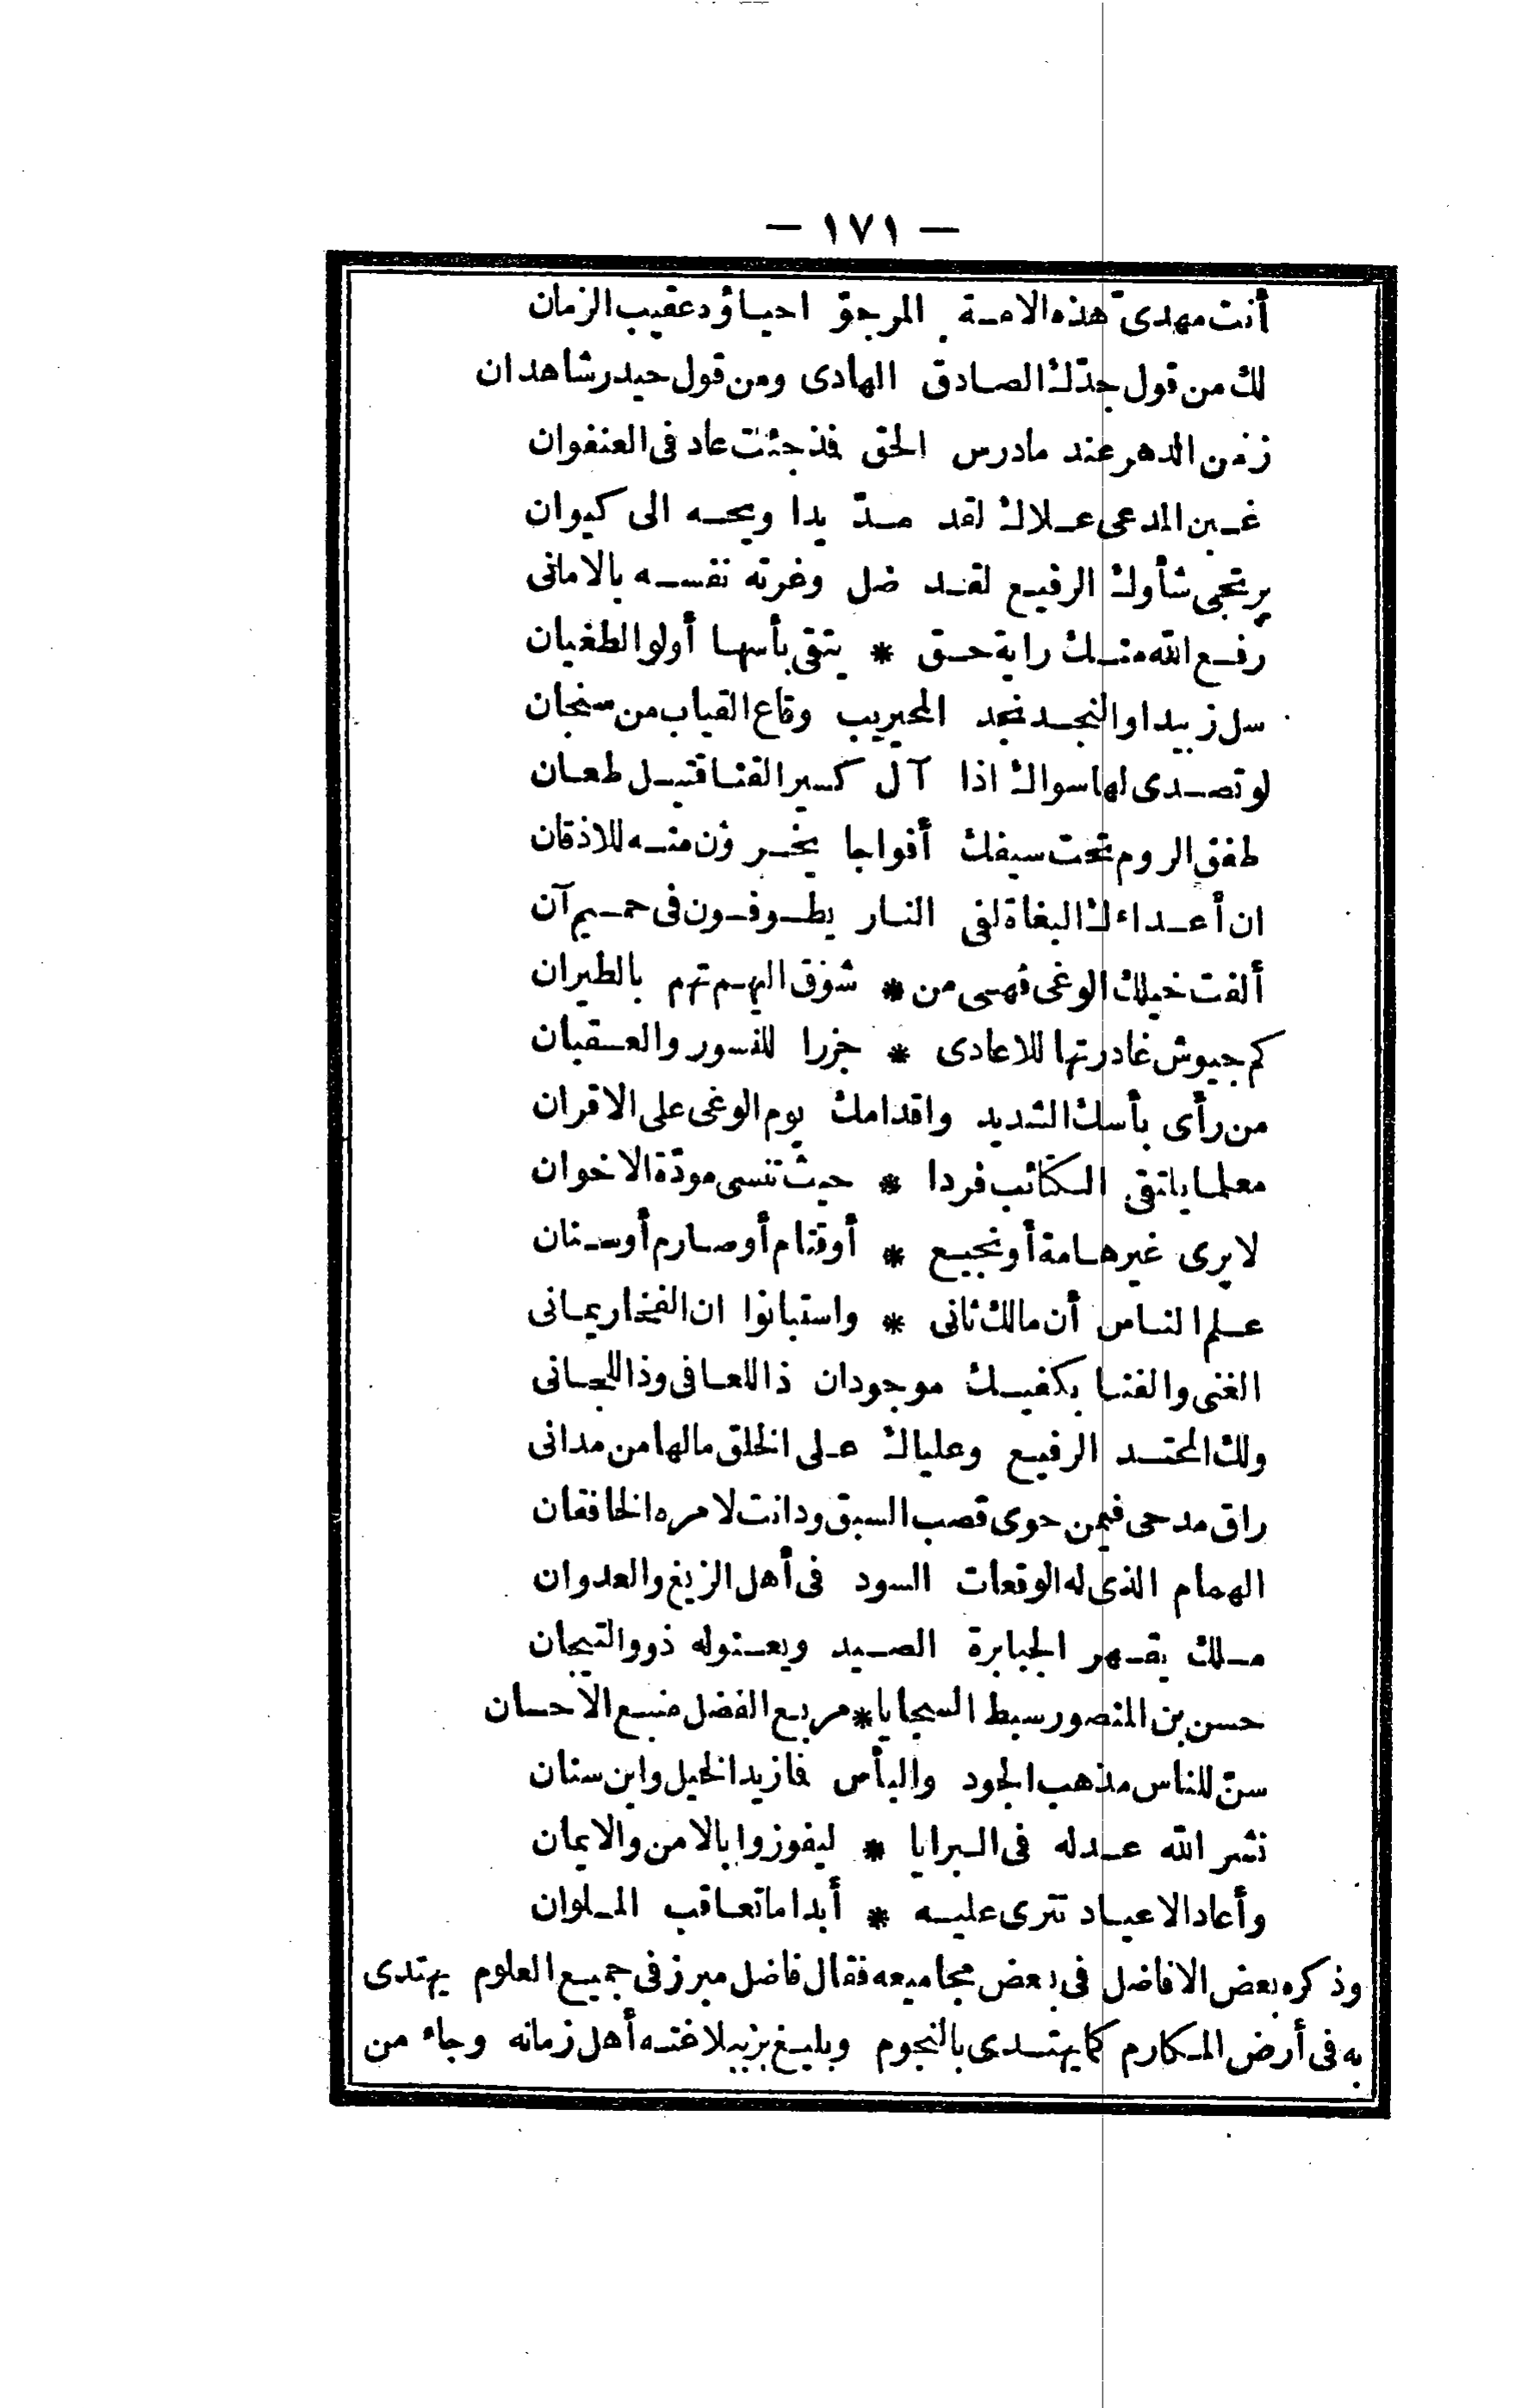 — ١٧١ —
أنت مهدىّ هذه الامـة المرجوّ احيـاؤ دعقيب الزمان
لك من قول جدّك الصـادق الهادى ومن قول حيدر شاهدان
زمن الدهر عند مادرس الحق فذ جئت عاد فى العنفوان
غـبن المدعى عـلاك لقد مـدّ يدا ويحـه الى كيوان
يرتجى شأوك الرفيع لقـد ضل وغرته نفسـه بالامانى
رفـع الله منـك راية حـق * يتقى بأسهـا أولو الطغيان
سل زبيدا والنجـد نجد المحيريب وقاع القباب من سنجان
لو تصـدى لها سواك اذا آل كـسير القنـا قتيـل طعـان
طفق الروم تحت سيفك أفواجا يخـر ون منـه للاذقان
ان أعـداءك البغاة لفى النـار يطـوفـون فى حمـيم آن
ألفت خيلك الوغى فهـى من * شوق اليهـم تهم بالطيران
كم جيوش غادرتها للاعادى * جزرا للنسور والعـقبان
من رأى بأسك الشديد واقدامك يوم الوغى على الاقران
معلمـا يلتقى الـكتائب فردا * حيث تنسى مودّة الاخوان
لا يرى غير هـامة أو نجيـع * أو قتام أو صـارم أو سـنان
عـلم النـاس أن مالك ثانى * واستبانوا ان الفخار يمـانى
الغنى والفنـا بكفيـك موجودان ذا للعـافى وذا للجـانى
ولك المحتـد الرفيـع وعلياك عـلى الخلق مالها من مدانى
راق مدحى فيمن حوى قصب السبق ودانت لامره الخافقان
الهمام الذى له الوقعات السود فى أهل الزيغ والعدوان
مـلك يقـهر الجبابرة الصـيد ويعـنوله ذو و التيجان
حسن بن المنصور سبط السجايا * مربع الفضل منبـع الاحسان
سنّ للناس مذهب الجود والبأس فما زيد الخيل وابن سنان
نشر الله عـدله فى الـبرايا * ليفوزوا بالامن والايمان
وأعاد الاعيـاد تترى عليـه * أبدا ما تعـاقب المـلوان
وذكره بعض الافاضل فى بعض مجاميعه فقال فاضل مبرز فى جميـع العلوم يهتدى
به فى أرض المـكارم كما يهتـدى بالنجوم وبليـغ بزببلاغتـه أهل زمانه وجاء من